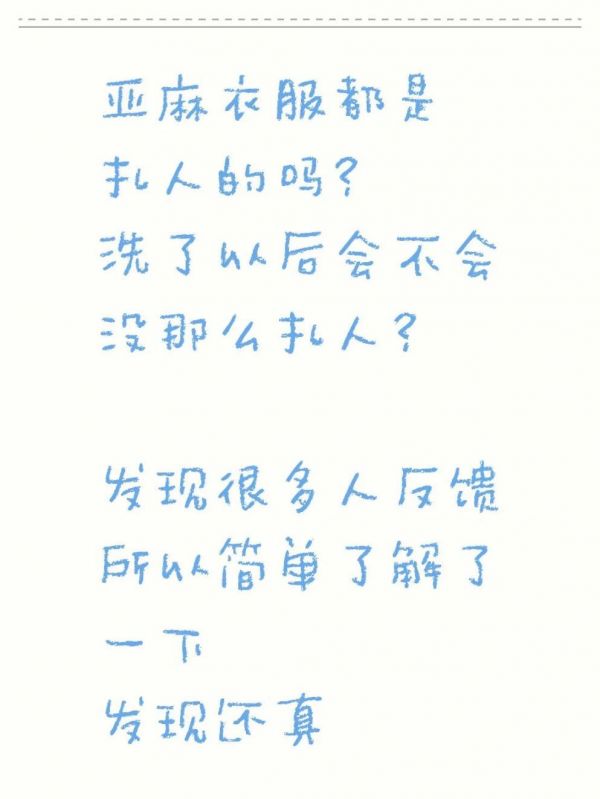 亚麻衣服都是
扎人的吗？
洗了以后会不会
没那么扎人？
发现很多人反馈
所以简单了解了
一下
发现还真